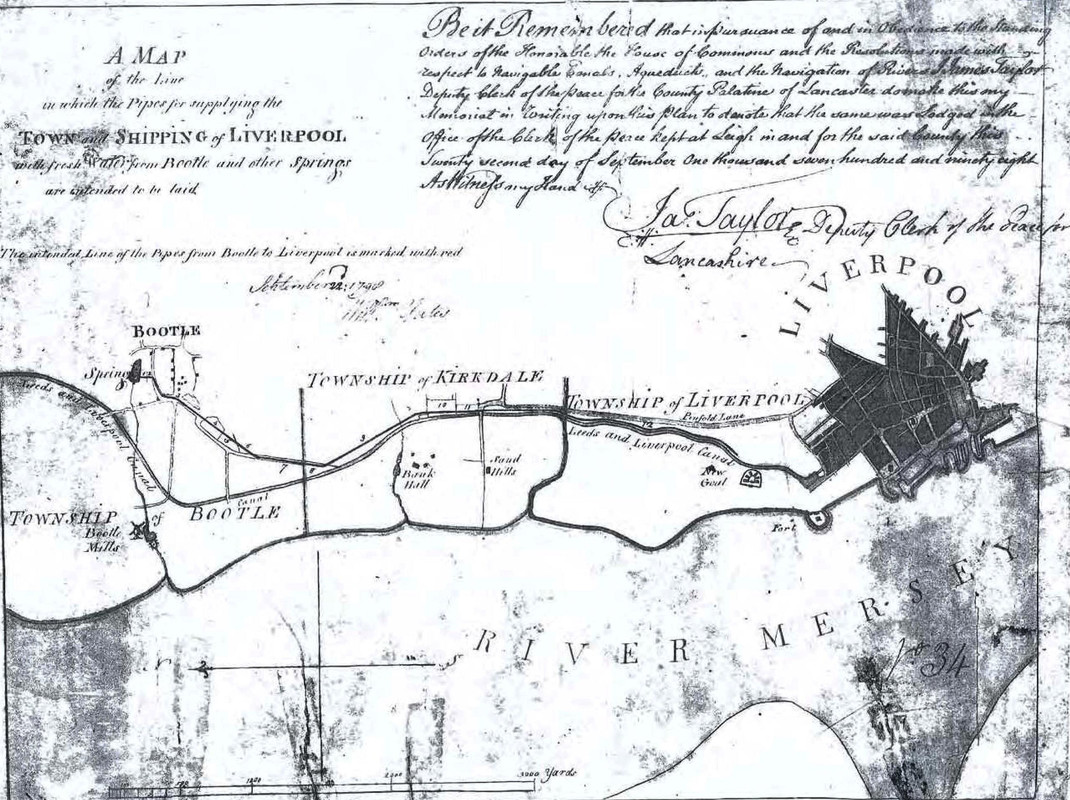 A MAP
of the Line
in which the Pipes for supplying the
TOWN and SHIPPING of LIVERPOOL
with fresh Water from Bootle and other Springs
are intended to be laid
Be it Remembered that in pursuance of and in Obedience to the Standing
Orders of the Honorable the House of Commons and the Resolutions made with
respect to Navigable Canals, Aqueducts, and the Navigation of Rivers I James Taylor
Deputy Clerk of the peace for the County Palatine of Lancaster do make this my
Memorial in Writing upon this Plan to denote that the same was Lodged in the
Office of the Clerk of the peace kept at Leigh in and for the said County this
Twenty second day of September One thousand seven hundred and ninety eight
As Witness my Hand
Jas. Taylor Deputy Clerk of the Peace for
Lancashire
The intended Line of the Pipes from Bootle to Liverpool is marked with red
September 1798
Yates
LIVERPOOL
BOOTLE
Spring
TOWNSHIP of KIRKDALE
TOWNSHIP of LIVERPOOL
Pinfold Lane
Leeds and Liverpool Canal
Leeds and Liverpool Canal
3
7
Bank Hall
Sand Hills
New Goal
Canal
TOWNSHIP of BOOTLE
Bootle Mills
Fort
RIVER MERSEY
N
S
34
3000 Yards